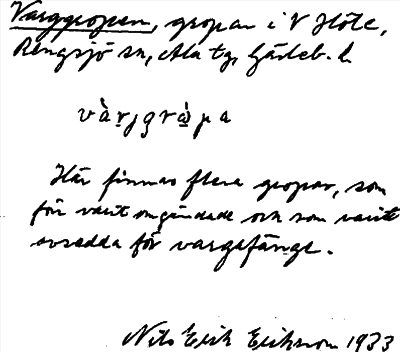 Varggropen, gropar i V Höle,
Rengsjö sn, Ala tg, Gävleb. l.
vàrjgrὼpa
Här finnas flera gropar, som
för varit omgärdade och som varit
avsedda för vargafänge.
Nils Erik Eriksson 1933